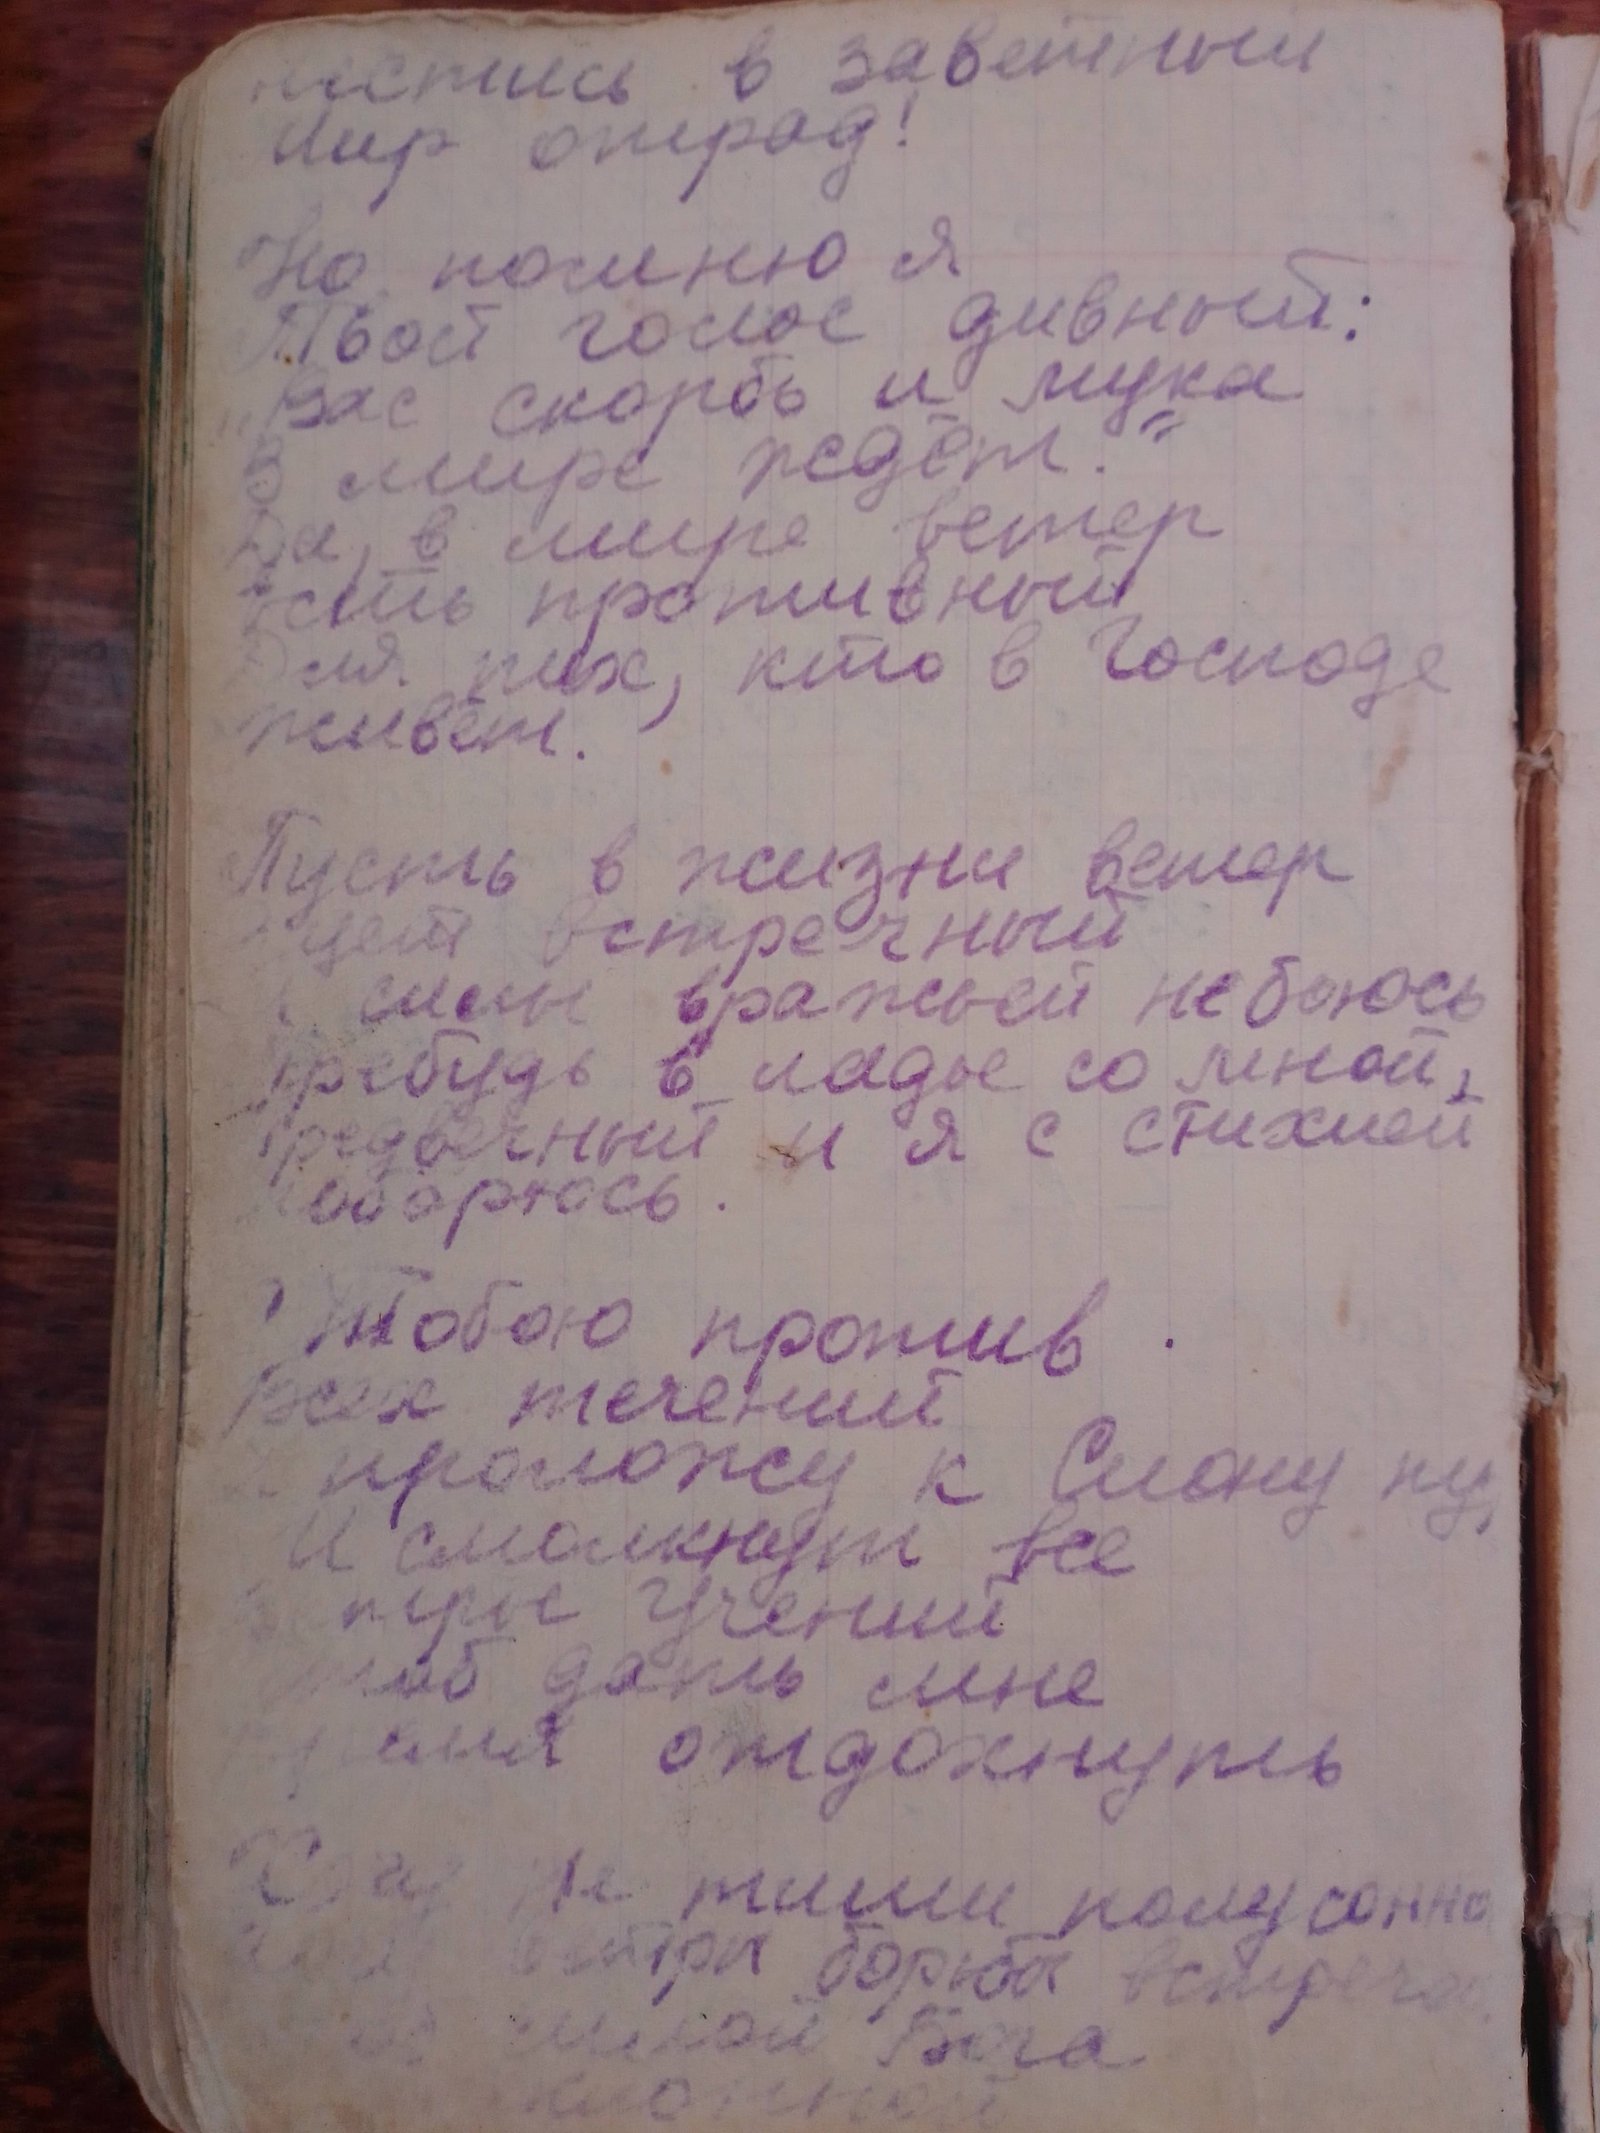 в заветный
Мир отрад!
Но помню я
Твой голос дивный:
„Вас скорбь и мука
В мире ждёт."
Да, в мире ветер
Есть противный
Для тех, кто в Господе
живёт.
Пусть в жизни ветер
встречный
силы вражьей не боюсь
Пребудь в ладье со мной,
Предвечный и я с стихией
поборюсь.
Тобою против
Всех течений
проложу к Сиону
И смолкнут все
ветры учений
чтоб дать мне
время отдохнуть
не тиши полусонно
борьбы
Бога